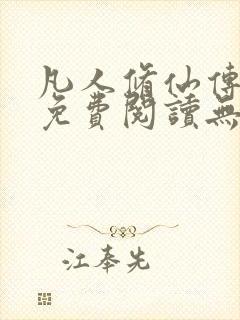 凡人脩仙傳
免費閱讀無
江奉先